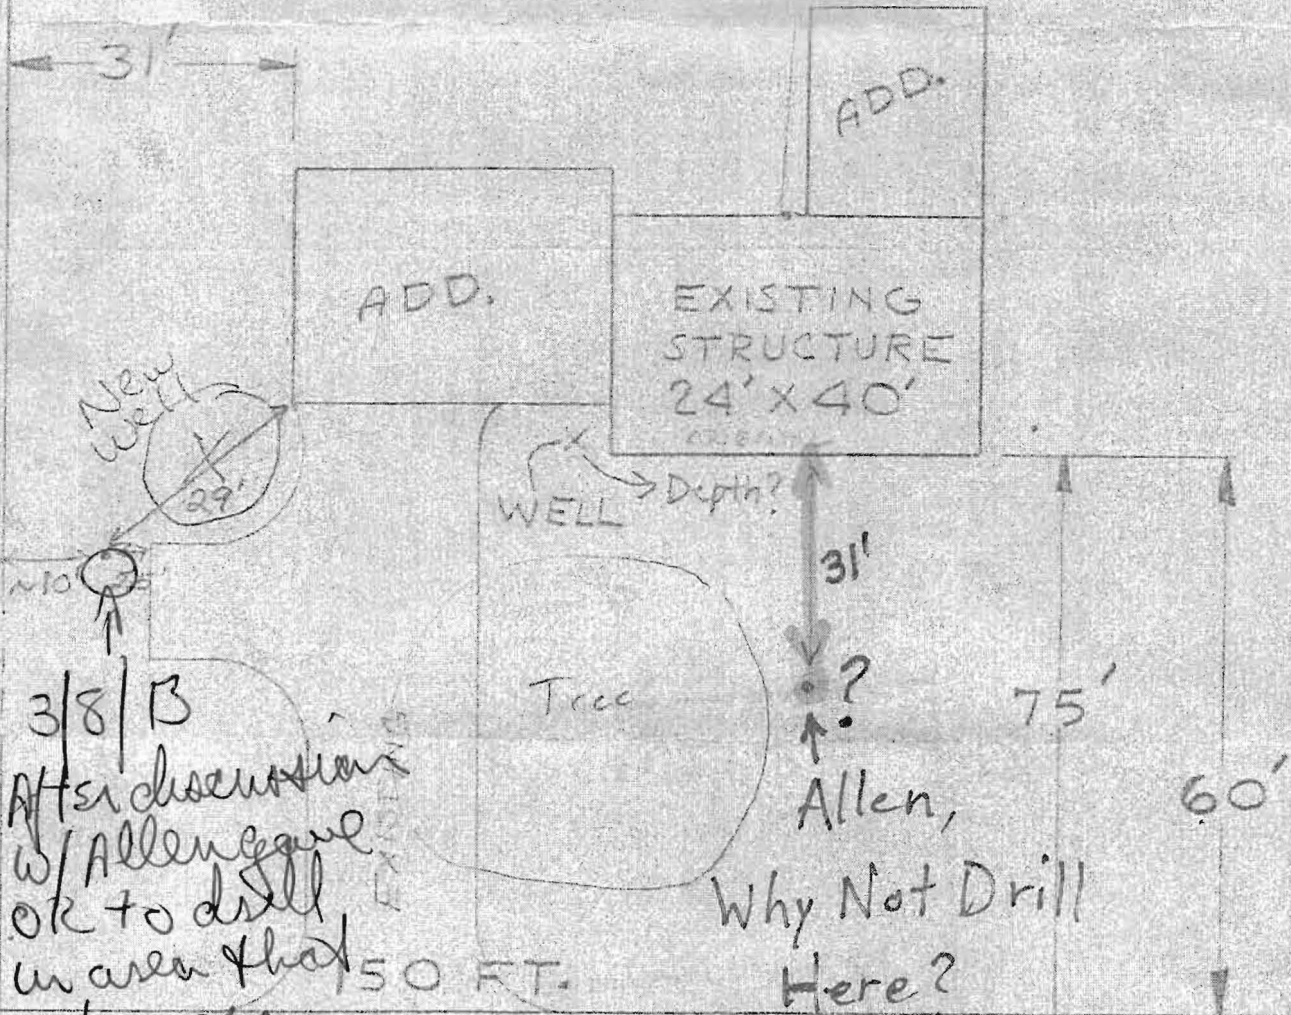 31'
ADD.
ADD.
EXISTING
STRUCTURE
24' X 40'
New
Well
29'
WELL
Depth?
31'
~10'
?
Tree
75'
60'
3/8/13
After discussion
w/ Allen gave
ok to drill
in area that
EXISTING
Allen,
Why Not Drill
Here?
150 FT.